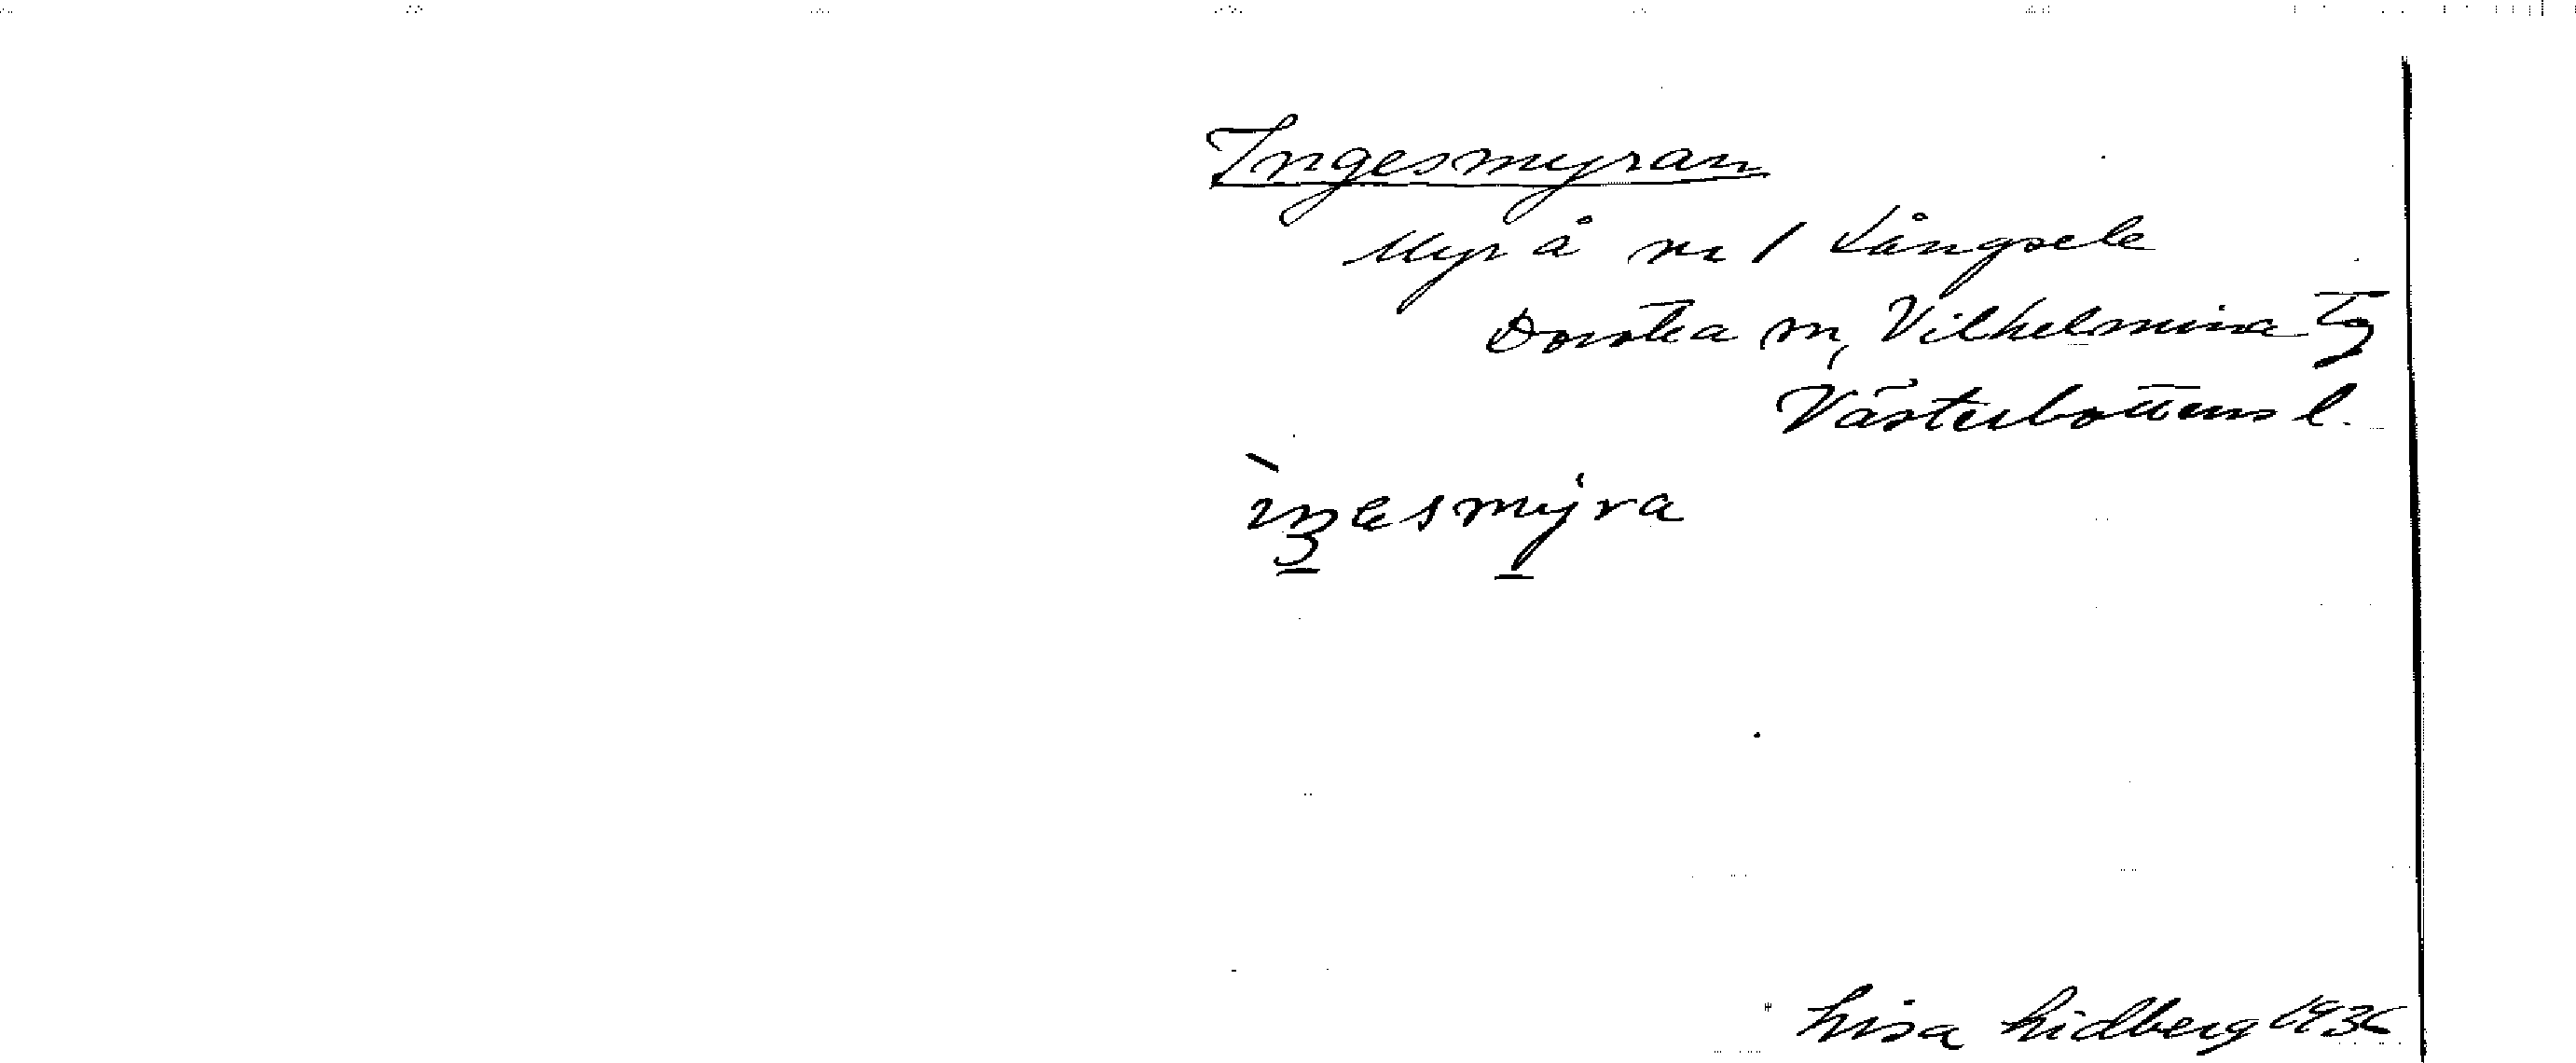 Ingesmyran
Myr å nr 1 Långsele
Dorotea sn, Vilhelmina Tg
Västerbottens l.
ìŋesmẏra
Lisa Lidberg 1936